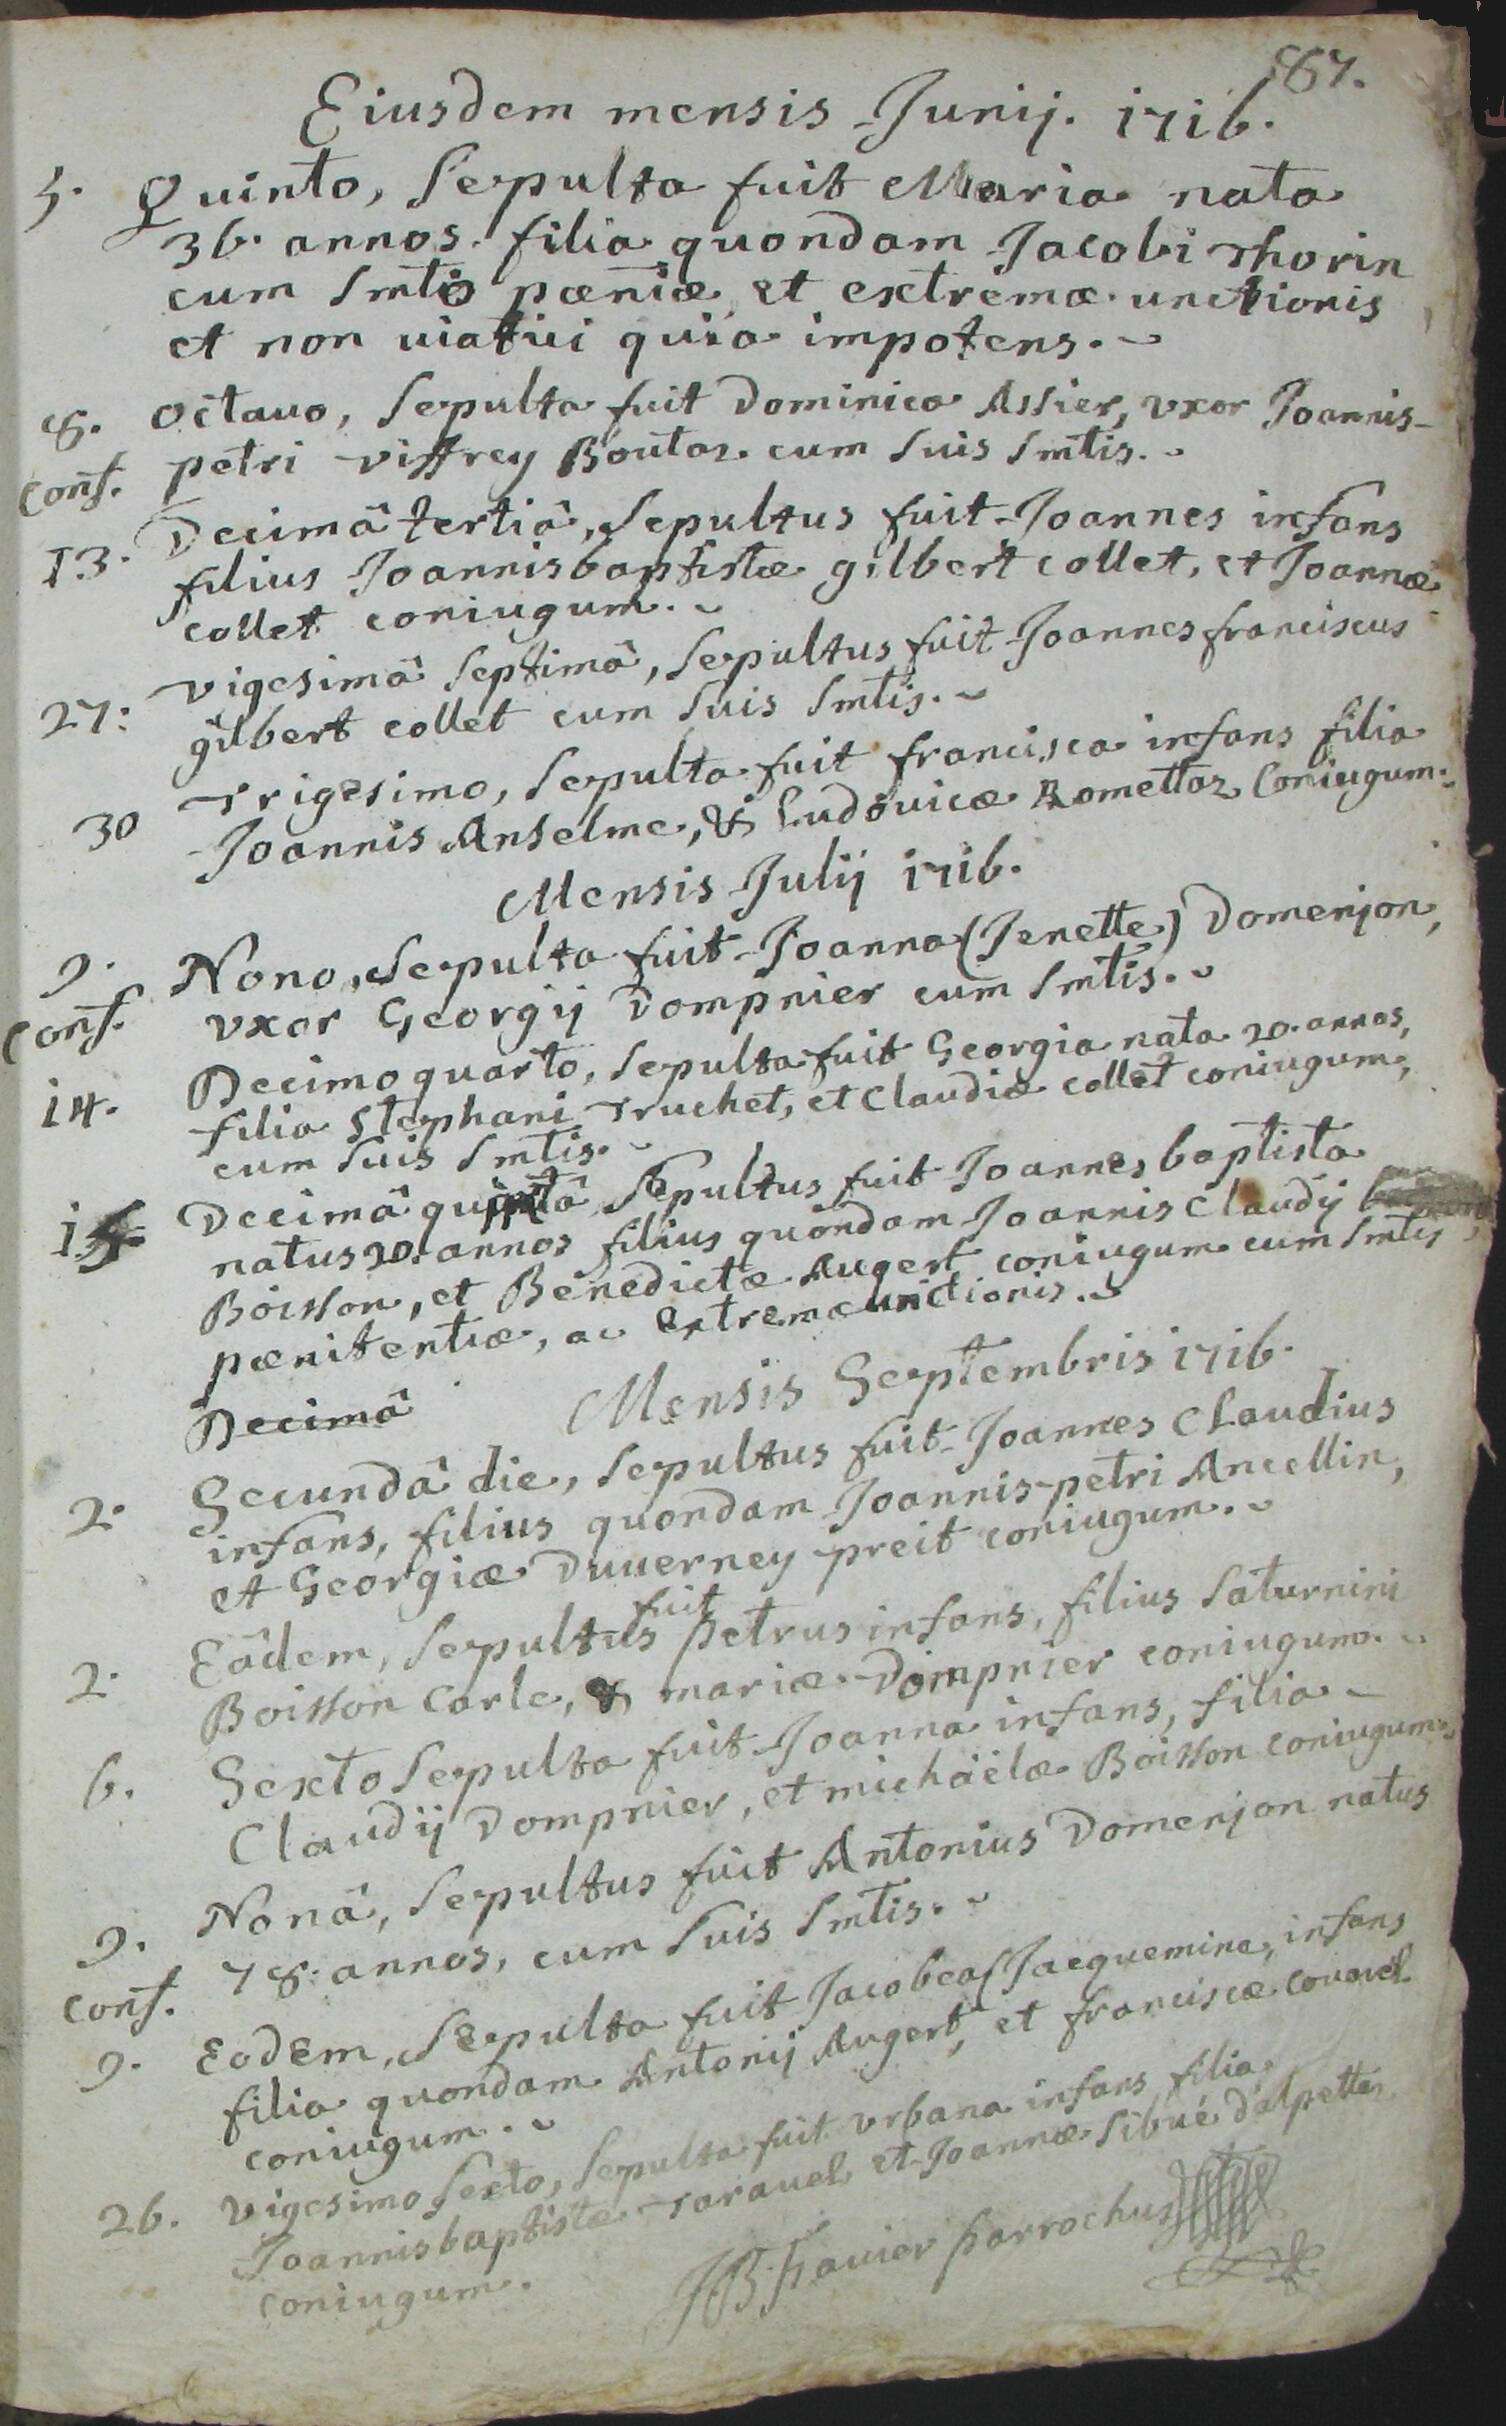 87.
Eiusdem mensis Junij. 1716.
5. Quinto, Sepulta fuit Maria nata
36. annos. filia quondam Jacobi Thorin
cum Smtis pœniæ, et extremæ unctionis
et non viatici quia impotens.
8. Octauo, Sepulta fuit Dominica Assier, vxor Joannis-
conf. petri Viffrey Boutaz cum suis Smtis.
13. Decimâ tertiâ, Sepultus fuit Joannes infans
filius Joannisbaptistæ gilbert collet, et Joannæ
collet coniugum.
27. vigesimâ Septimâ, Sepultus fuit Joannesfranciscus
gilbert collet cum suis Smtis.
30 Trigesimo, Sepulta fuit francisca infans filia
Joannis Anselme, & Ludovicæ Romettaz Coniugum.
Mensis Julij 1716.
9. Nono, Sepulta fuit Joanna (Jenette) Domenjon,
conf. vxor Georgij Dompnier cum Smtis.
14. Decimoquarto, Sepulta fuit Georgia nata 20. annos,
filia Stephani Truchet, et Claudiæ collet coniugum,
cum suis Smtis.
15 Decimâ quintâ Sepultus fuit Joannes baptista
natus 20. annos filius quondam Joannis Claudij
Boisson, et Benedictæ Augert coniugum cum Smtis
pœnitentiæ, ac Extremæunctionis.
Decimâ
Mensis Septembris 1716.
2. Secundâ die, Sepultus fuit Joannes Claudius
infans, filius quondam Joannis-petri Ancellin,
et Georgiæ Duverney preit coniugum.
2. Eâdem, Sepultus fuit petrus infans, filius Saturnini
Boisson Carle, & mariæ Dompnier coniugum.
6. Sexto Sepulta fuit Joanna infans, filia
Claudij Dompnier, et michäelæ Boisson coniugum.
9. Nonâ, Sepultus fuit Antonius Domenjon natus
conf. 78. annos, cum suis Smtis.
9. Eodem, Sepulta fuit Jacobea (Jacquemine, infans
filia quondam Antonij Augert, et franciscæ Couvavel
coniugum.
26. Vigesimo Sexto, Sepulta fuit vrbana infans filia
Joannisbaptistæ Taravel et Joannæ Sibué d'alpettaz
coniugum.
JB. favier parrochus